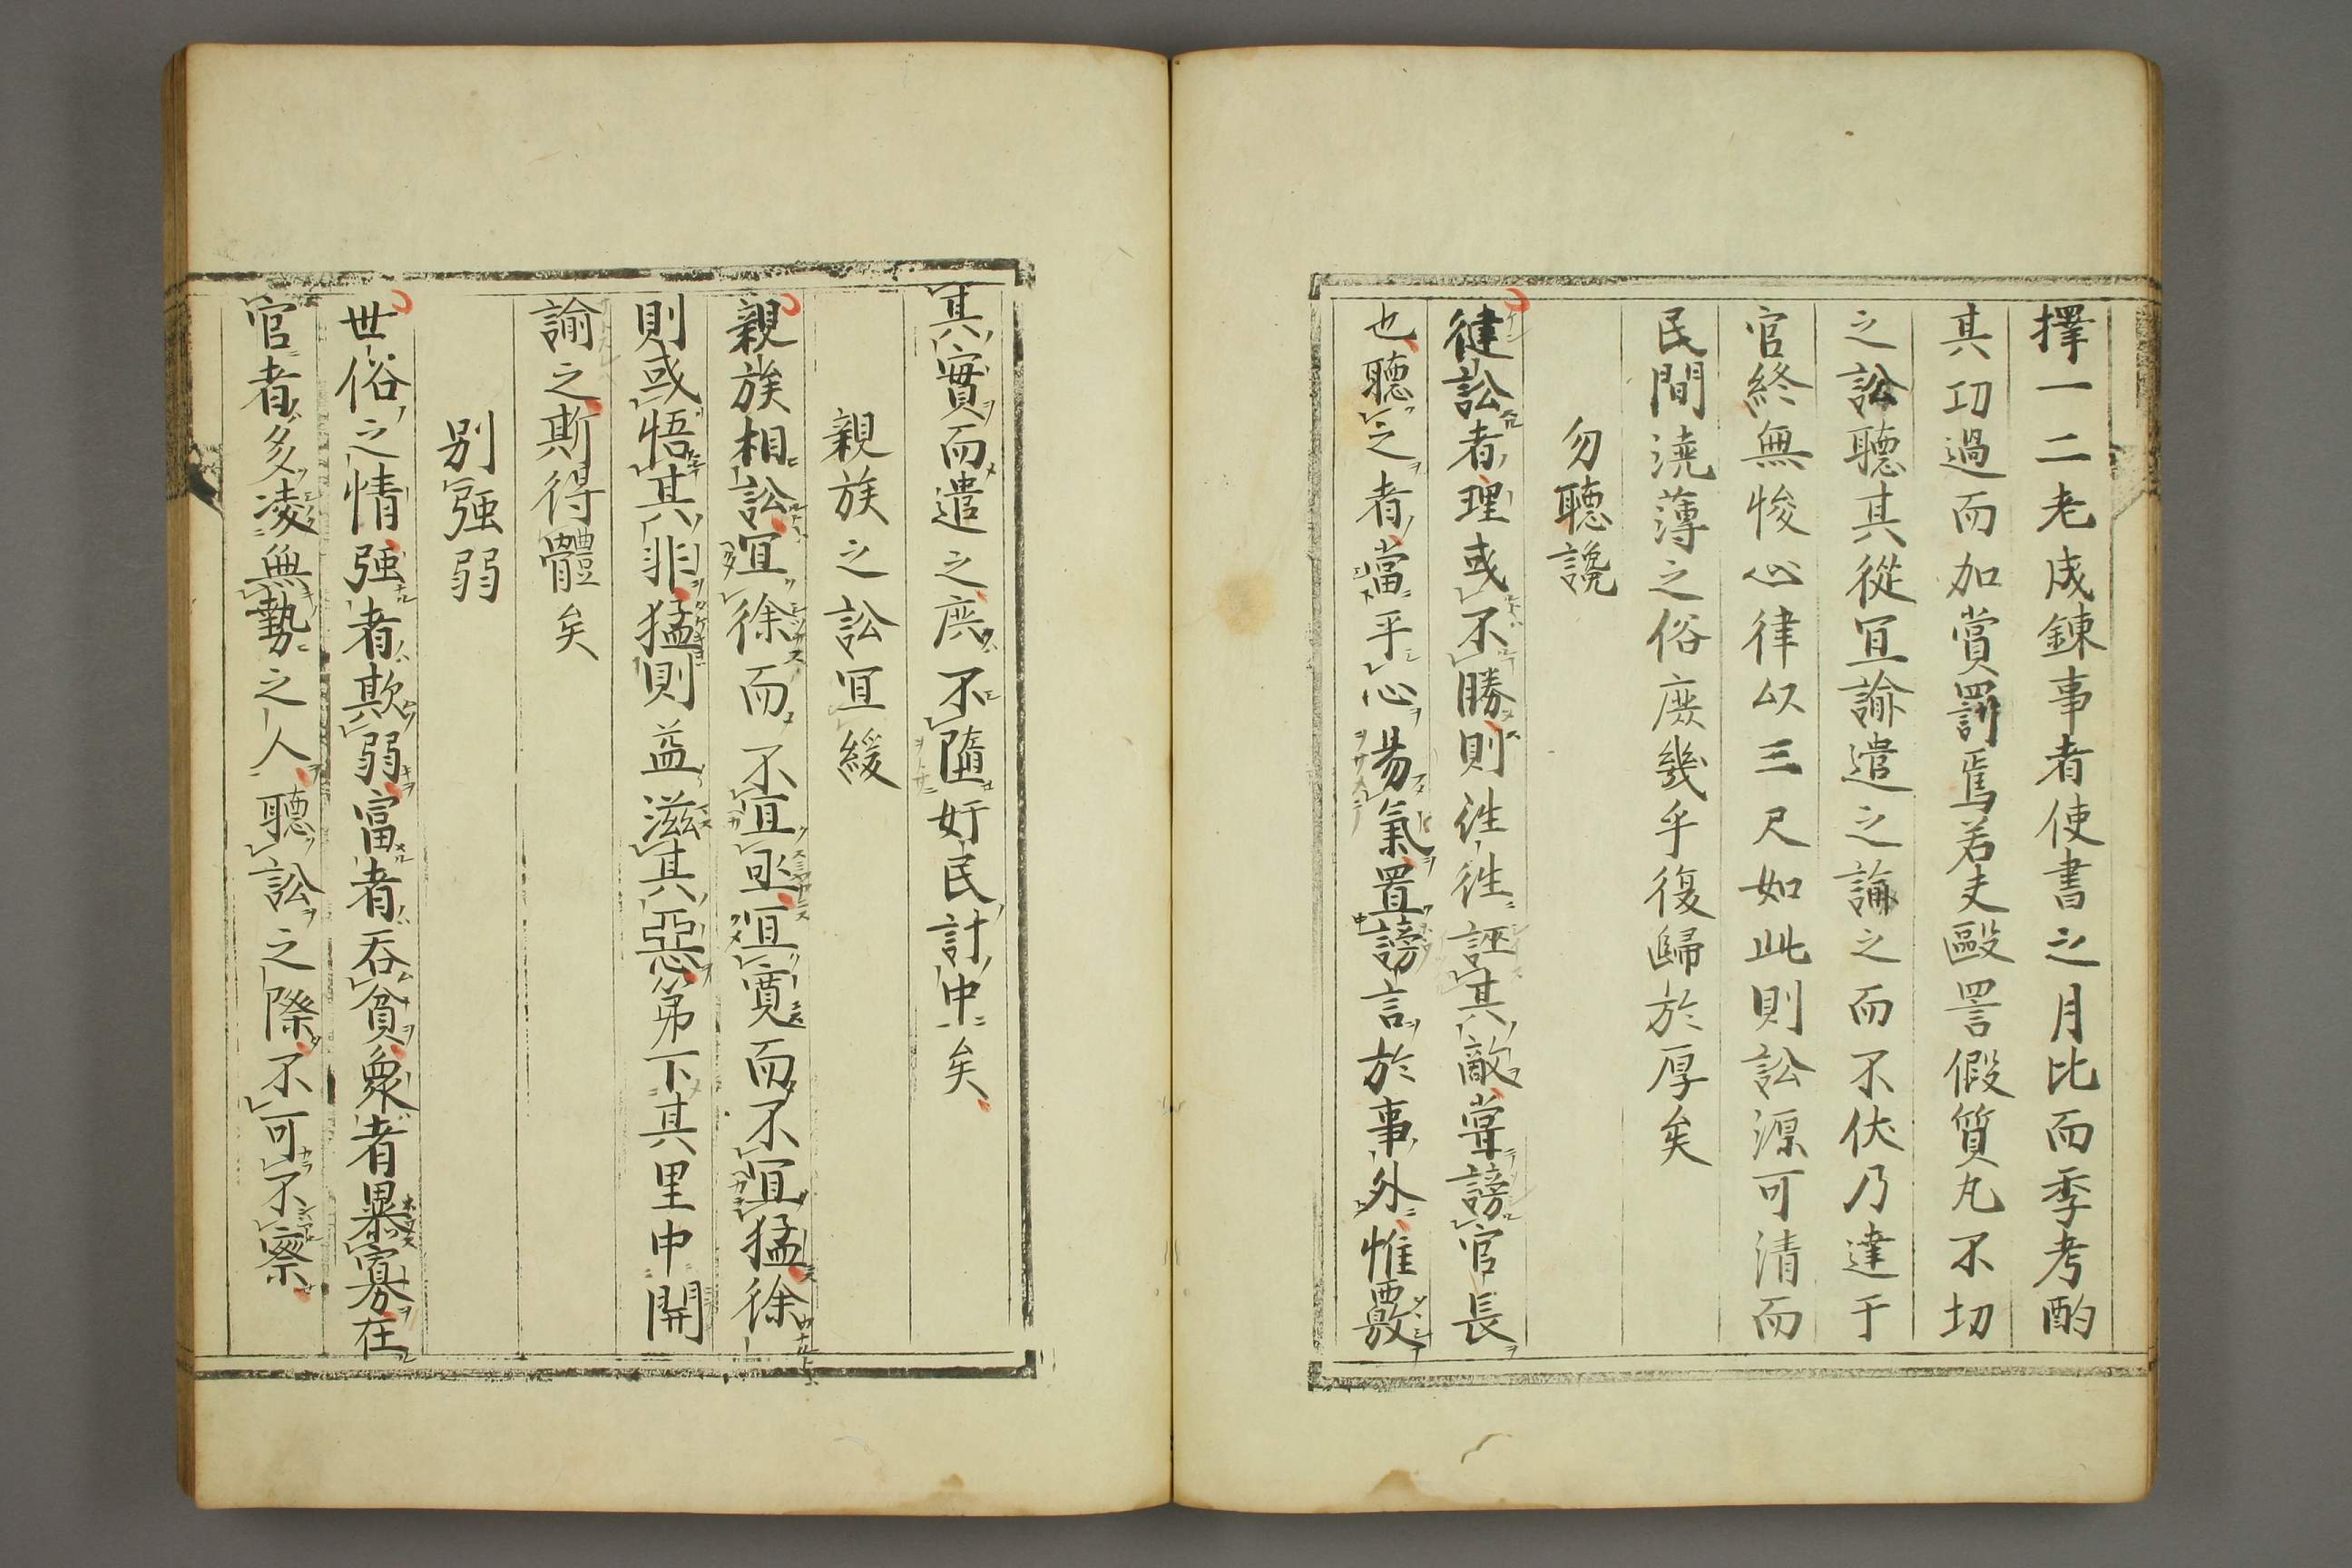 擇一二老成錬事者使書之月比而季考酌
其功過而加賞罰焉若夫毆詈假質凡不切
之訟聽其從冝諭遣之諭之而不伏乃達于
官終無悛心律以三尺如此則訟源可清而
民間澆薄之俗庶幾乎復歸於厚矣
勿聽讒
健訟者理或不勝則徃徃誣其敵甞謗官長
也聽之者當平心易氣置謗言於事外惟覈
其實而遣之庶不墮奸民計中矣
親族之訟冝緩
親族相訟冝徐而不冝亟冝寛而不冝猛徐
則或悟其非猛則益滋其惡第下其里中開
諭之斯得體矣
别强弱
世俗之情强者欺弱富者吞貧衆者暴寡在
官者多凌無勢之人聽訟之際不可不察